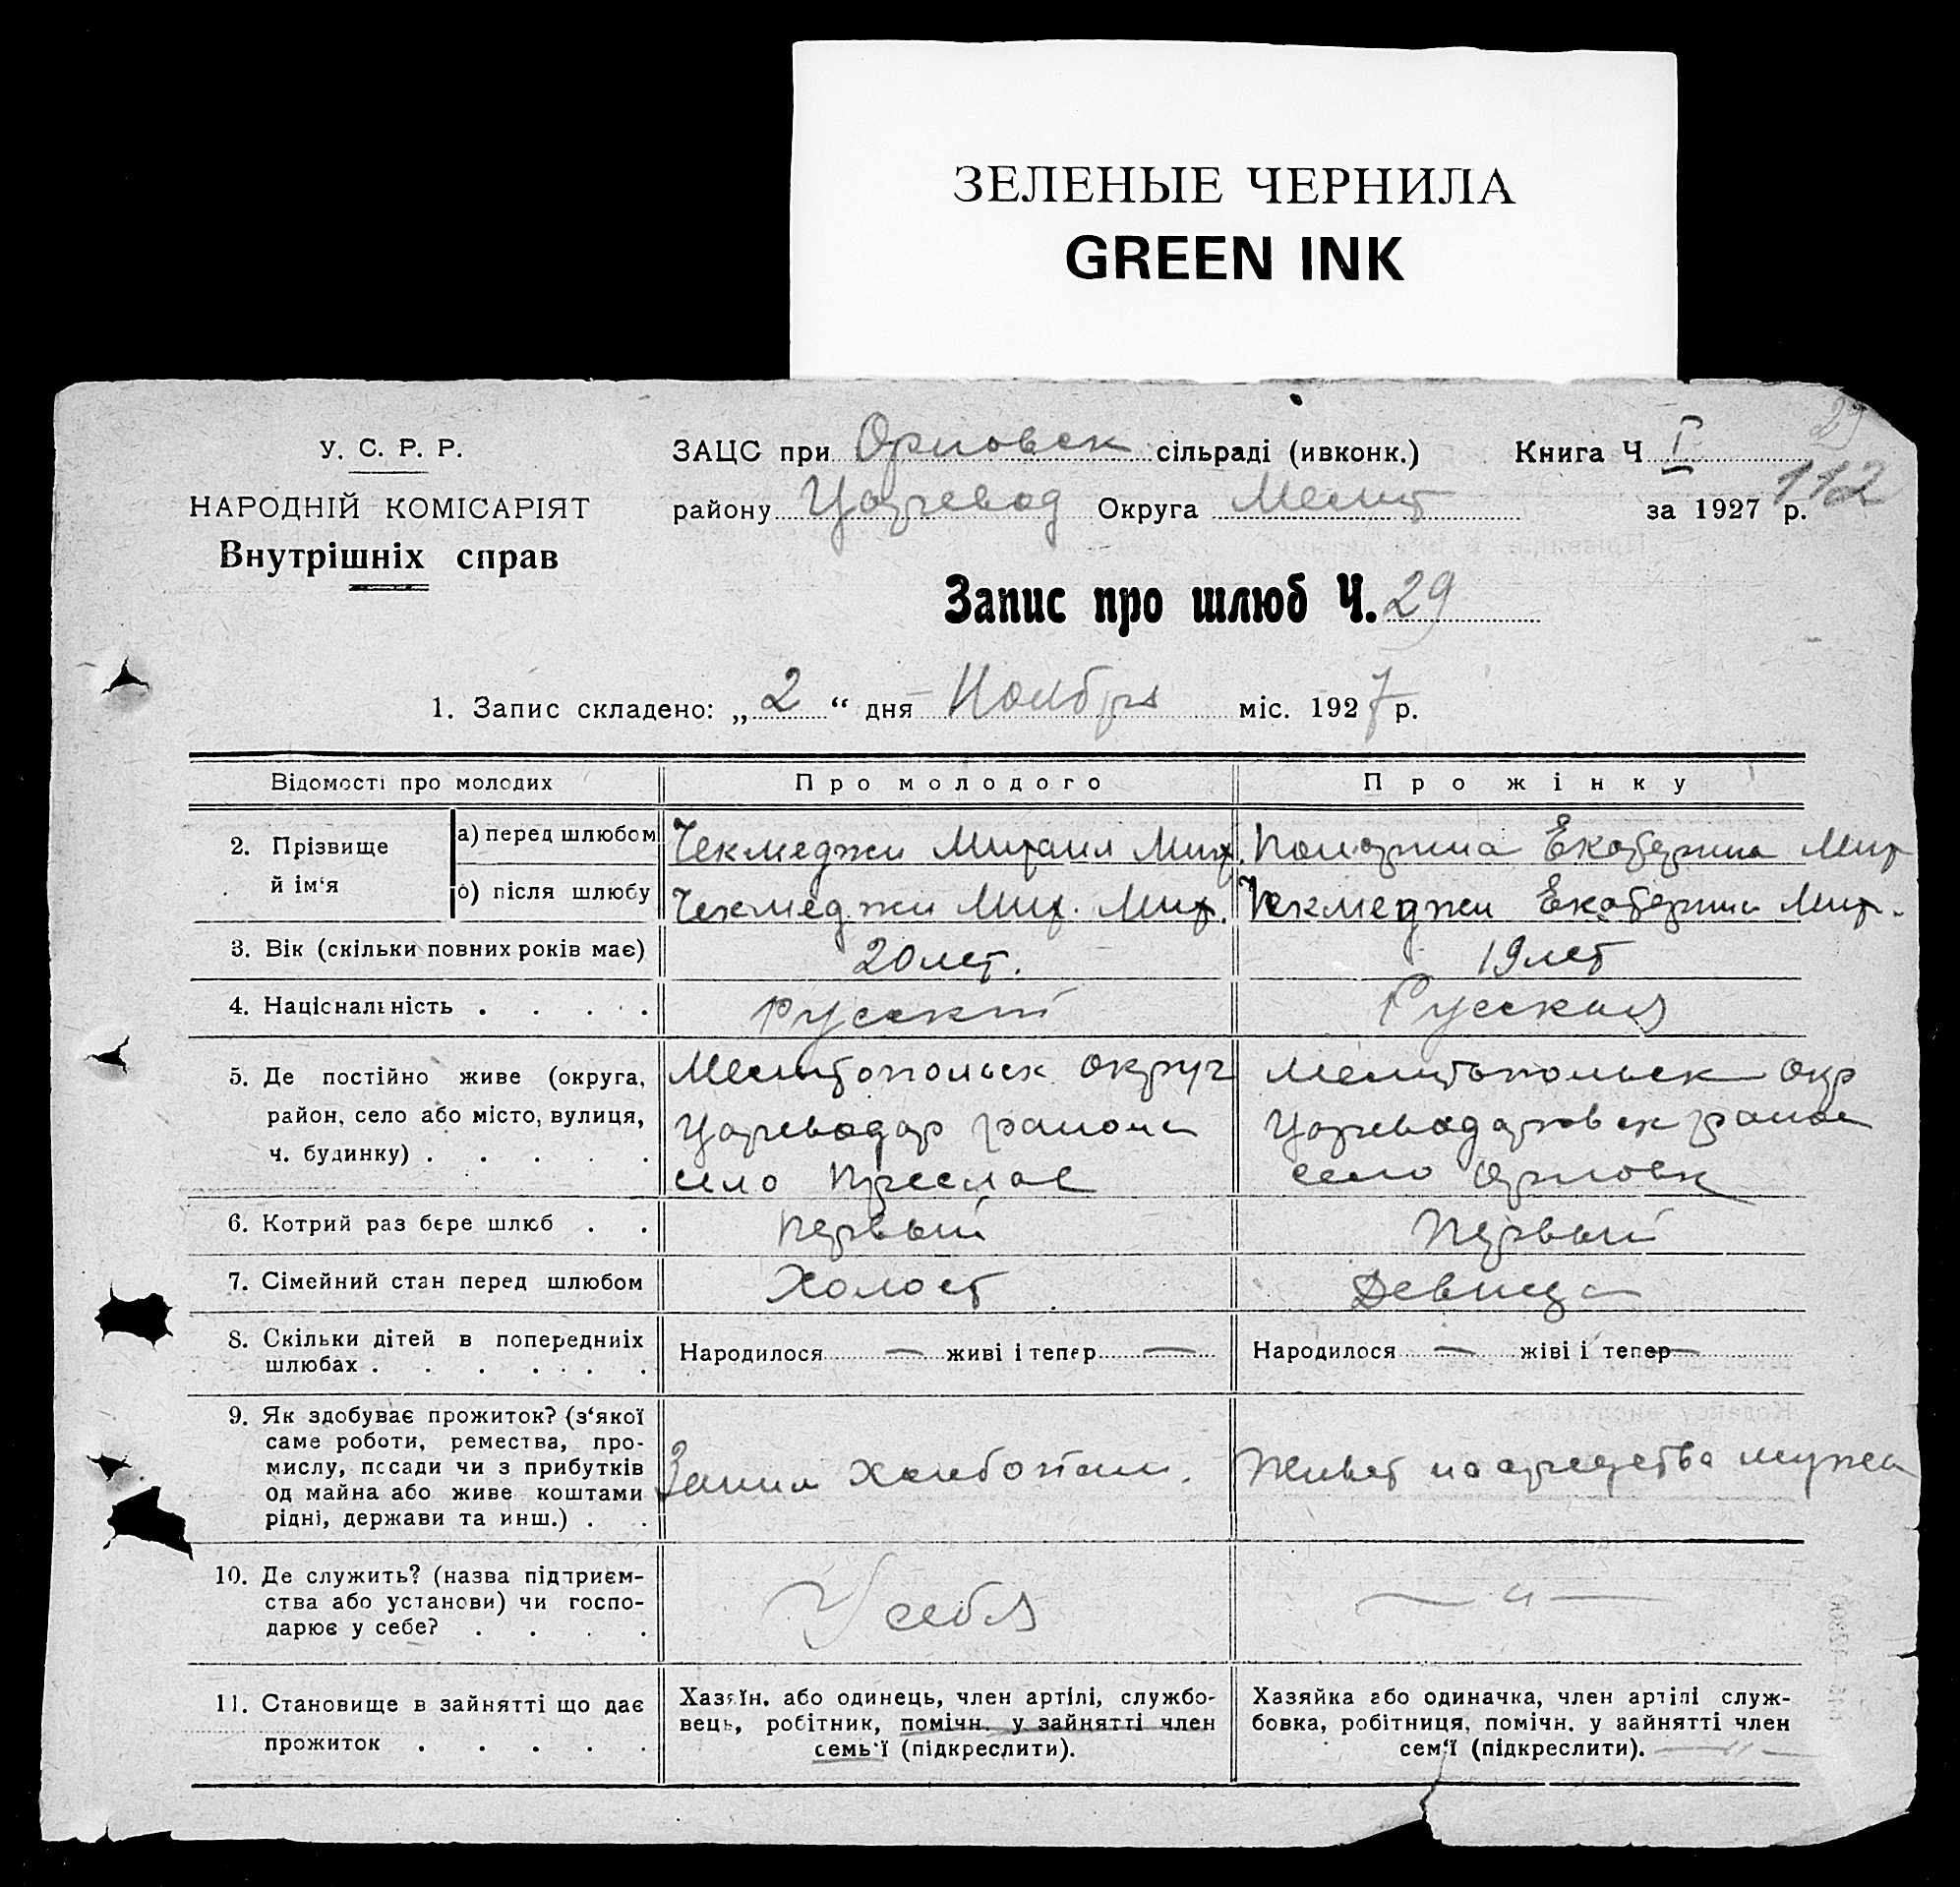 ЗЕЛЕНЫЕ ЧЕРНИЛА
GREEN INK
29
У. С. Р. Р.
НАРОДНІЙ КОМІСАРІЯТ
Внутрішніх справ
ЗАЦС при Орловск сільраді (ивконк.) Книга Ч I
району Царевод Округа Мелит за 1927 р. 112
Запис про шлюб Ч. 29
1. Запис складено: „ 2 “ дня Ноября міс. 1927 р.
Відомості про молодих Про молодого Про жінку
2. Прізвище й ім‘я
а) перед шлюбом Чекмеджи Михаил Мих. Екатерина Мих
б) після шлюбу Чекмеджи Мих. Мих. Чекмеджи Екатерина Мих.
3. Вік (скільки повних років має) 20 лет. 19 лет
4. Національність . . . . Русский Русская
5. Де постійно живе (округа, Мелитопольск округ Мелитопольск окр
район, село або місто, вулиця, Цареводар района Цареводаровск район
ч. будинку) . . . . . село Преслав село Орловк
6. Котрий раз бере шлюб . . Первый Первый
7. Сімейний стан перед шлюбом Холост Девица
8. Скільки дітей в попередниіх
шлюбах . . . . . . Народилося — живі і тепер — Народилося — жіві і тепер —
9. Як здобуває прожиток? (з‘якої
саме роботи, ремества, про-
мислу, посади чи з прибутків
од майна або живе коштами
рідні, держави та инш.) . .
Заним хлебопаш. Живет на средства мужа
10. Де служить? (назва підприєм-
ства або установи) чи госпо-
дарює у себе? . . . .
У себя — „ —
11. Становище в зайнятті що дає
прожиток . . . . .
Хазяїн, або одинець, член артілі, службо-
вець, робітник, помічн. у зайнятті член
семь‘ї (підкреслити).
Хазяйка або одиначка, член артілі служ-
бовка, робітниця, помічн. у зайнятті член
сем‘ї (підкреслити). — „ —